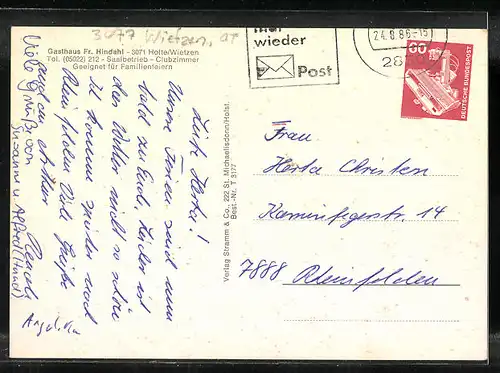 3077 Wietzen, OT
Gasthaus Fr. Hindahl - 3071 Holte/Wietzen
Tel. (05022) 212 - Saalbetrieb - Clubzimmer
Geeignet für Familienfeiern
mal
wieder
Post
24.8.86-15
28
60
DEUTSCHE BUNDESPOST
Liebe Herta!
Unsere Ferien sind nun
bald zu Ende, leider ist
das Wetter nicht so schön
Es kommen wieder nach
Rheinfelden. Viele Grüße
Viele Grüße von
Susanne u. Alfred (Hund)
Angelika
Verlag Stramm & Co., 222 St. Michaelisdonn/Holst.
Best.-Nr. T 3177
Frau
Herta Christen
Kaminfegerstr. 14
7888 Rheinfelden